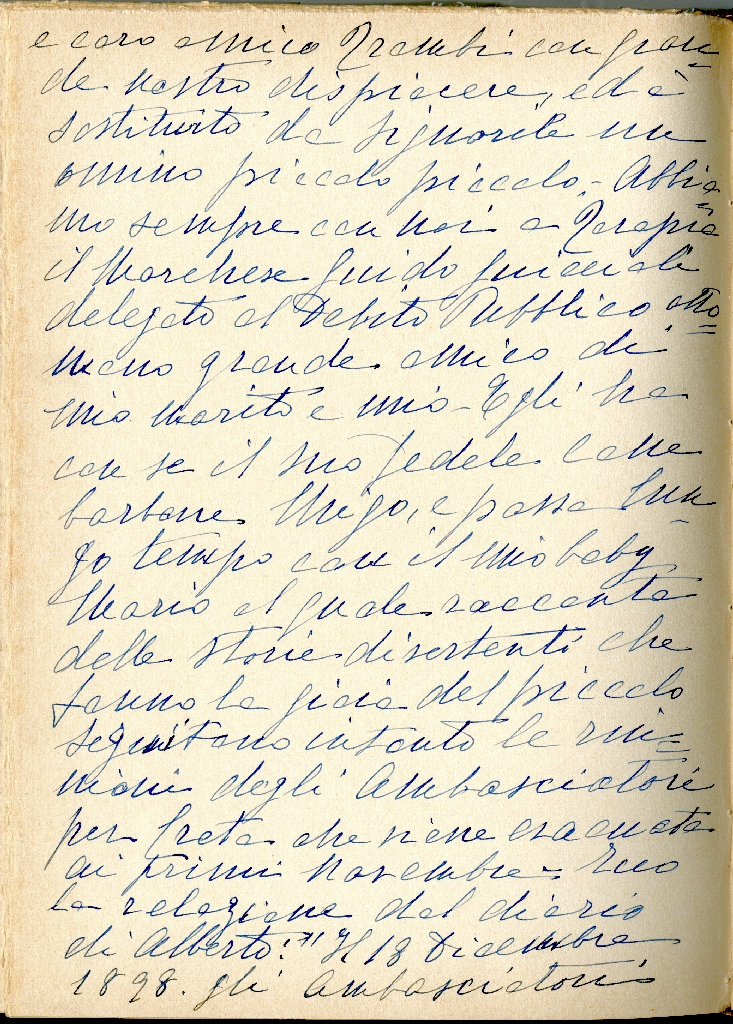 e caro amico Zrambi con gran=
de nostro dispiacere, ed è
sostituito da Signorile un
omino piccolo piccolo. - Abbia=
mo sempre con noi a Terapia
il Marchese Guido Guiccioli
delegato al Debito Pubblico otto=
mano grande amico di
mio marito e mio - Egli ha
con se il suo fedele cane
barbone, e passa lun=
go tempo con il mio baby
Mario al quale racconta
delle storie divertenti che
fanno la gioia del piccolo
Seguitano intanto le riu=
nioni degli Ambasciatori
per Creta che viene evacuata
ai primi Novembre = Ecco
la relazione dal diario
di Alberto: "Il 18 Dicembre
1898. gli Ambasciatori